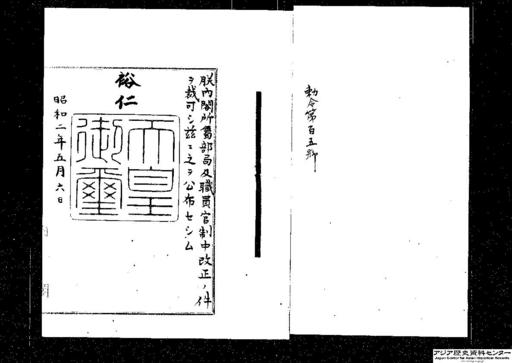 勅令第百五号
朕內閣所屬部局及職員官制中改正ノ件
ヲ裁可シ茲ニ之ヲ公布セシム
裕仁
天皇
御璽
昭和二年五月六日
アジア歴史資料センター
Japan Center for Asian Historical Records